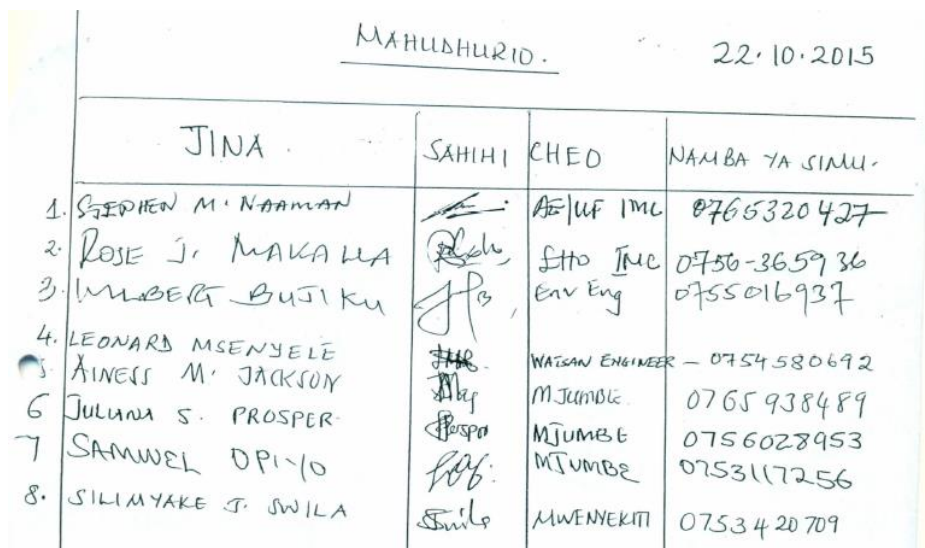 MAHUDHURIO. 22.10.2015
JINA. SAHIHI CHEO NAMBA YA SIMU.
1. STEPHEN M. NAAMAN AE/UF IMC 0765320427
2. ROSE J. MAKALLA EHO IMC 0756-365936
3. WILBERT BUJIKU Env Eng 0755016937
4. LEONARD MSENYELE WATSAN ENGINEER - 0754580692
5. AINESS M. JACKSON MJUMBE 0765938489
6 JULIANA S. PROSPER. MJUMBE 0756028953
7 SAMWEL OPIYO MJUMBE 0753117256
8. SILIMYAKE J. SWILA MWENYEKITI 0753420709